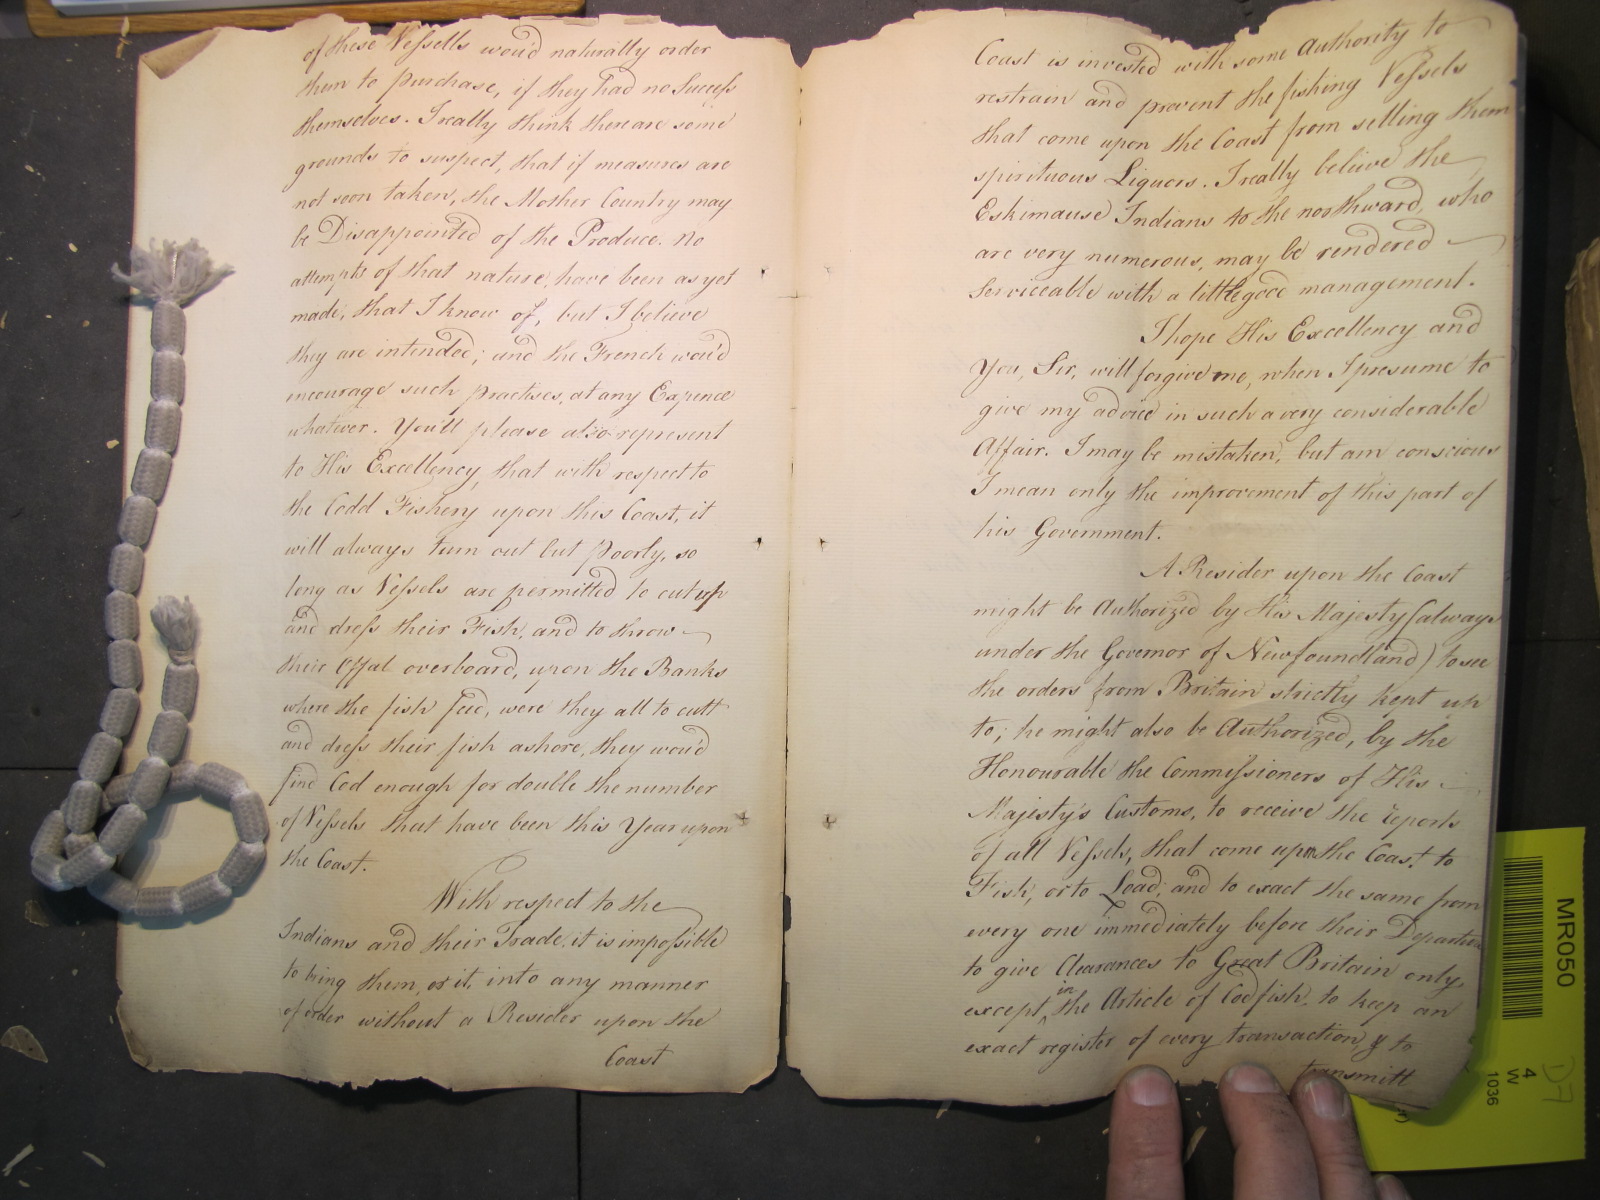 of these Vessells wou'd naturally order
them to purchase, if they had no Success
themselves. I really think there are some
grounds to suspect, that if measures are
not soon taken, the Mother Country may
be Disappointed of the Produce. No
attempts of that nature have been as yet
made, that I know of, but I believe
they are intended; and the French wou'd
incourage such practises, at any Expence
whatever. You'll please also represent
to His Excellency, that with respect to
the Codd Fishery upon this Coast, it
will always turn out but poorly, so
long as Vessels are permitted to cut up
and dress their Fish, and to throw
their Offal overboard, upon the Banks
where the fish feed, were they all to cutt
and dress their fish ashore, they wou'd
find Cod enough for double the number
of Vessels that have been this Year upon
the Coast.
With respect to the
Indians and their Trade, it is impossible
to bring them, or it, into any manner
of order without a Resider upon the
Coast
Coast is invested with some Authority to
restrain and prevent the fishing Vessels
that come upon the Coast from selling them
spirituous Liquors. I really believe the
Eskimause Indians to the northward, who
are very numerous, may be rendered
Serviceable with a little good management.
I hope His Excellency and
You, Sir, will forgive me, when I presume to
give my advice in such a very considerable
Affair. I may be mistaken, but am conscious
I mean only the improvement of this part of
his Government.
A Resider upon the Coast
might be Authorized by His Majesty (always
under the Governor of Newfoundland) to see
the orders from Britain strictly kept up
to; he might also be Authorized, by the
Honourable the Commissioners of His
Majesty's Customs, to receive the reports
of all Vessels, that come upon the Coast to
Fish, or to Load, and to exact the same from
every one immediately before their Departure
to give Clearances to Great Britain only,
except in the Article of Codfish, to keep an
exact register of every transaction, & to
transmitt
MR050
4
W
1036
D7